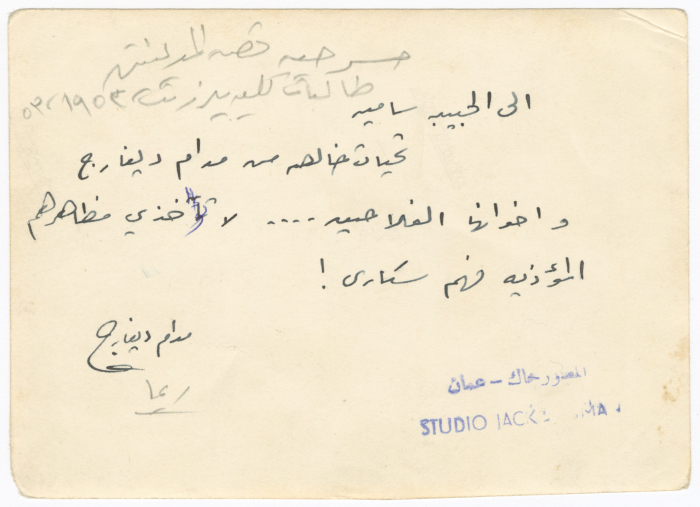 مسرحية قصة المدينتين
طالبات كلية بيرزيت ١٩٥٣
الى الحبيبه ساميه
تحيات خالصه من مدام ديفارج
و اخوانها الفلاحين .... لا تؤاخذي مظاهرهم
المؤذيه فهم سكارى !
مدام ديفارج
ريما
المصور جاك - عمان
STUDIO JACK